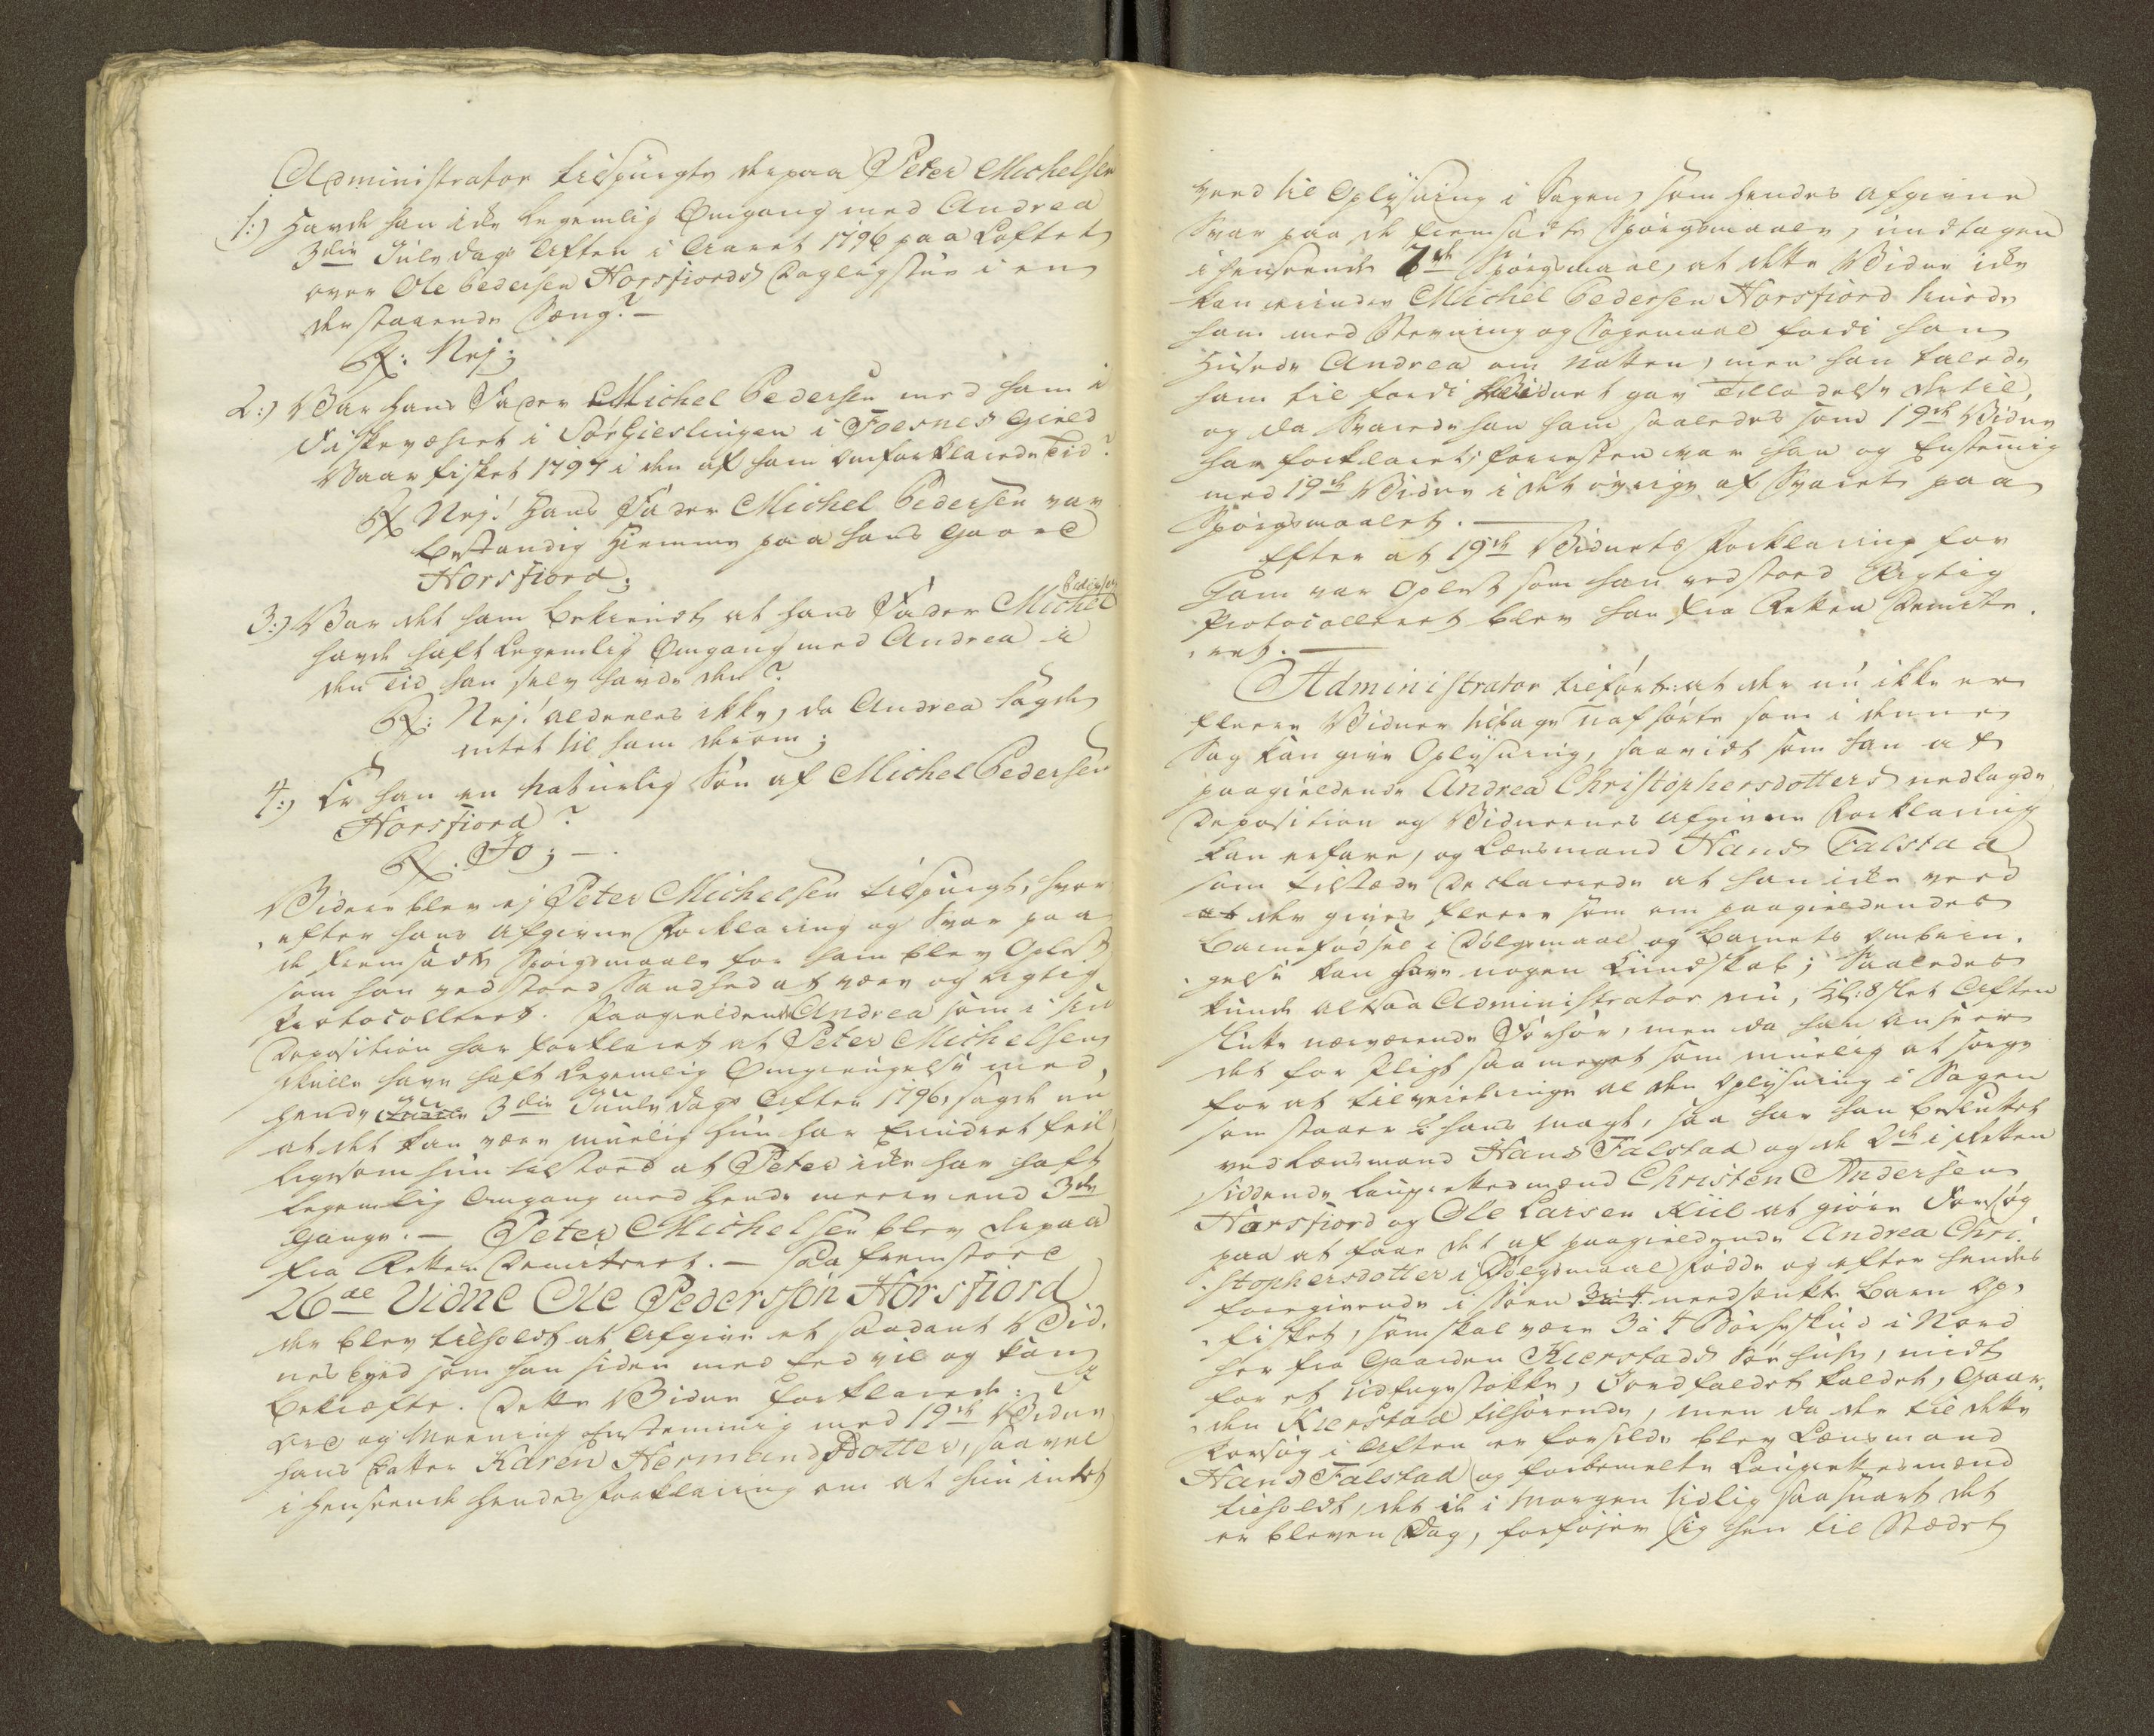 Administrator tilspurgte derpaa Peter Michelsen
1:) Havde han ikke legemlig Omgang med Andrea
3die Jule Dags Aften i Aaret 1796 paa Loftet
over Ole Pedersen Horsfiords Dagligstue i en
derstaaende Seng? —
R: Nej;
2:) Var hans Fader Michel Pedersen med ham i
Fiskeværet i Sørgieslingen i Foesnes Gield
Vaarfisket 1797 i den af ham omforklarede Tid?
R Nej! Hans Fader Michel Pedersen var
bestandig hiemme paa hans Gaard
Horsfiord;
3:) Var det ham bekiendt at hans Fader Michel Pedersen
havde haft legemlig Omgang med Andrea i
den Tid han selv havde den?
R: Nej! aldeeles ikke, da Andrea sagde
intet til ham derom;
4:) Er han en naturlig Søn af Michel Pedersen
Horsfiord?
R. Jo; —.
Videre blev ej Peter Michelsen tilspurgt, hvor
efter hans afgivne Forklaring og Svar paa
de fremsadte Spørgsmaale for ham blev Oplest
som han vedstoed Sandhed at være og rigtig
Protocolleret. Paagieldende Andrea som i sin
Deposition har forklaret at Peter Michelsen
skulle have haft legemlig Omgiengelse med
hende 3die Juule Dags Aften 1796, sagde nu
at det kan være muelig hun har erindret feil
ligesom hun tilstoed at Peter ikke har haft
legemlig Omgang med hende meere end 3de
Gange. — Peter Michelsen blev derpaa
fra Retten Demitteret. — Saa fremstoed
26de Vidne Ole Pedersøn Horsfiord
der blev tilholdt at afgive et saadant Vid-
nesbyrd som han siden med Eed vil og kan
bekræfte. Dette Vidne forklarede: I
Ord og Meening eenstemmig med 19de Vidne
hans Datter Karen Hermands Dotter, saavel
i henseende hendes Forklaring om at hun intet
veed til Oplysning i Sagen som hendes afgivne
Svar paa de fremsadte Spørgsmaale, undtagen
i henseende 7de Spørgsmaal, at dette Vidne ikke
kan erindre Michel Pedersen Horsfiord truede
ham med Stevning og Søgemaal fordi han
husede Andrea om Natten, men han talede
ham til fordi Vidnet gav Tilladelse dertil,
og da svarede han ham saaledes som 19de Vidne
har forklaret; forresten var han og Eenstemmig
med 19de Vidne i det øvrige af Svaret paa
Spørgsmaalet. —
Efter at 19de Vidnets Forklaring for
ham var Oplest som han vedstoed rigtig
Protocolleret blev han fra Retten Demitte-
ret. —
Administrator tilførte: at der nu ikke er
fleere Vidner tilbage uafhørte som i denne
Sag kan give Oplysning, saavidt som han af
paagieldende Andrea Christophersdotters nedlagde
Deposition og Vidnernes afgivne Forklaring
kan erfare, og Lænsmand Hans Falstad
som tilstæde Declarerede at han ikke veed
at der gives fleere som om paagieldendes
Barnefødsel i Dølgsmaal og Barnets ombrin-
gelse kan have nogen Kundskab; Saaledes
kunde altsaa Administrator nu, Kl: 8 slet Aften
slutte nærværende Forhør, men da han anseer
det for Pligt saameget som muelig at sørge
for at tilveiebringe al den Oplysning i Sagen
som staaer i hans Magt, saa har han besluttet
ved Lænsmand Hans Falstad og de 2de i Retten
siddende Laugrettesmænd Christen Andersen
Horsfiord og Ole Larsen Kiil at giøre Forsøg
paa at faae det af paagieldende Andrea Chri-
stophersdotter i Dølgsmaal fødde og efter hendes
foregivende i Søen nedsænkte Barn Op-
fisket, som skal være 3 à 4 Børseskud i Nord
her fra Gaarden Kierstads Vaarhuse, midt
for et Udhugstøkke, Jordfaldet kaldet, Gaar-
den Kierstad tilhørende, men da der til dette
Forsøg i Aften er forsilde blev Lænsmand
Hans Falstad og forbemelte Laugrettesmænd
tilholdt, det de i Morgen tidlig saasnart det
er bleven Dag, forføjer sig hen til Stædet